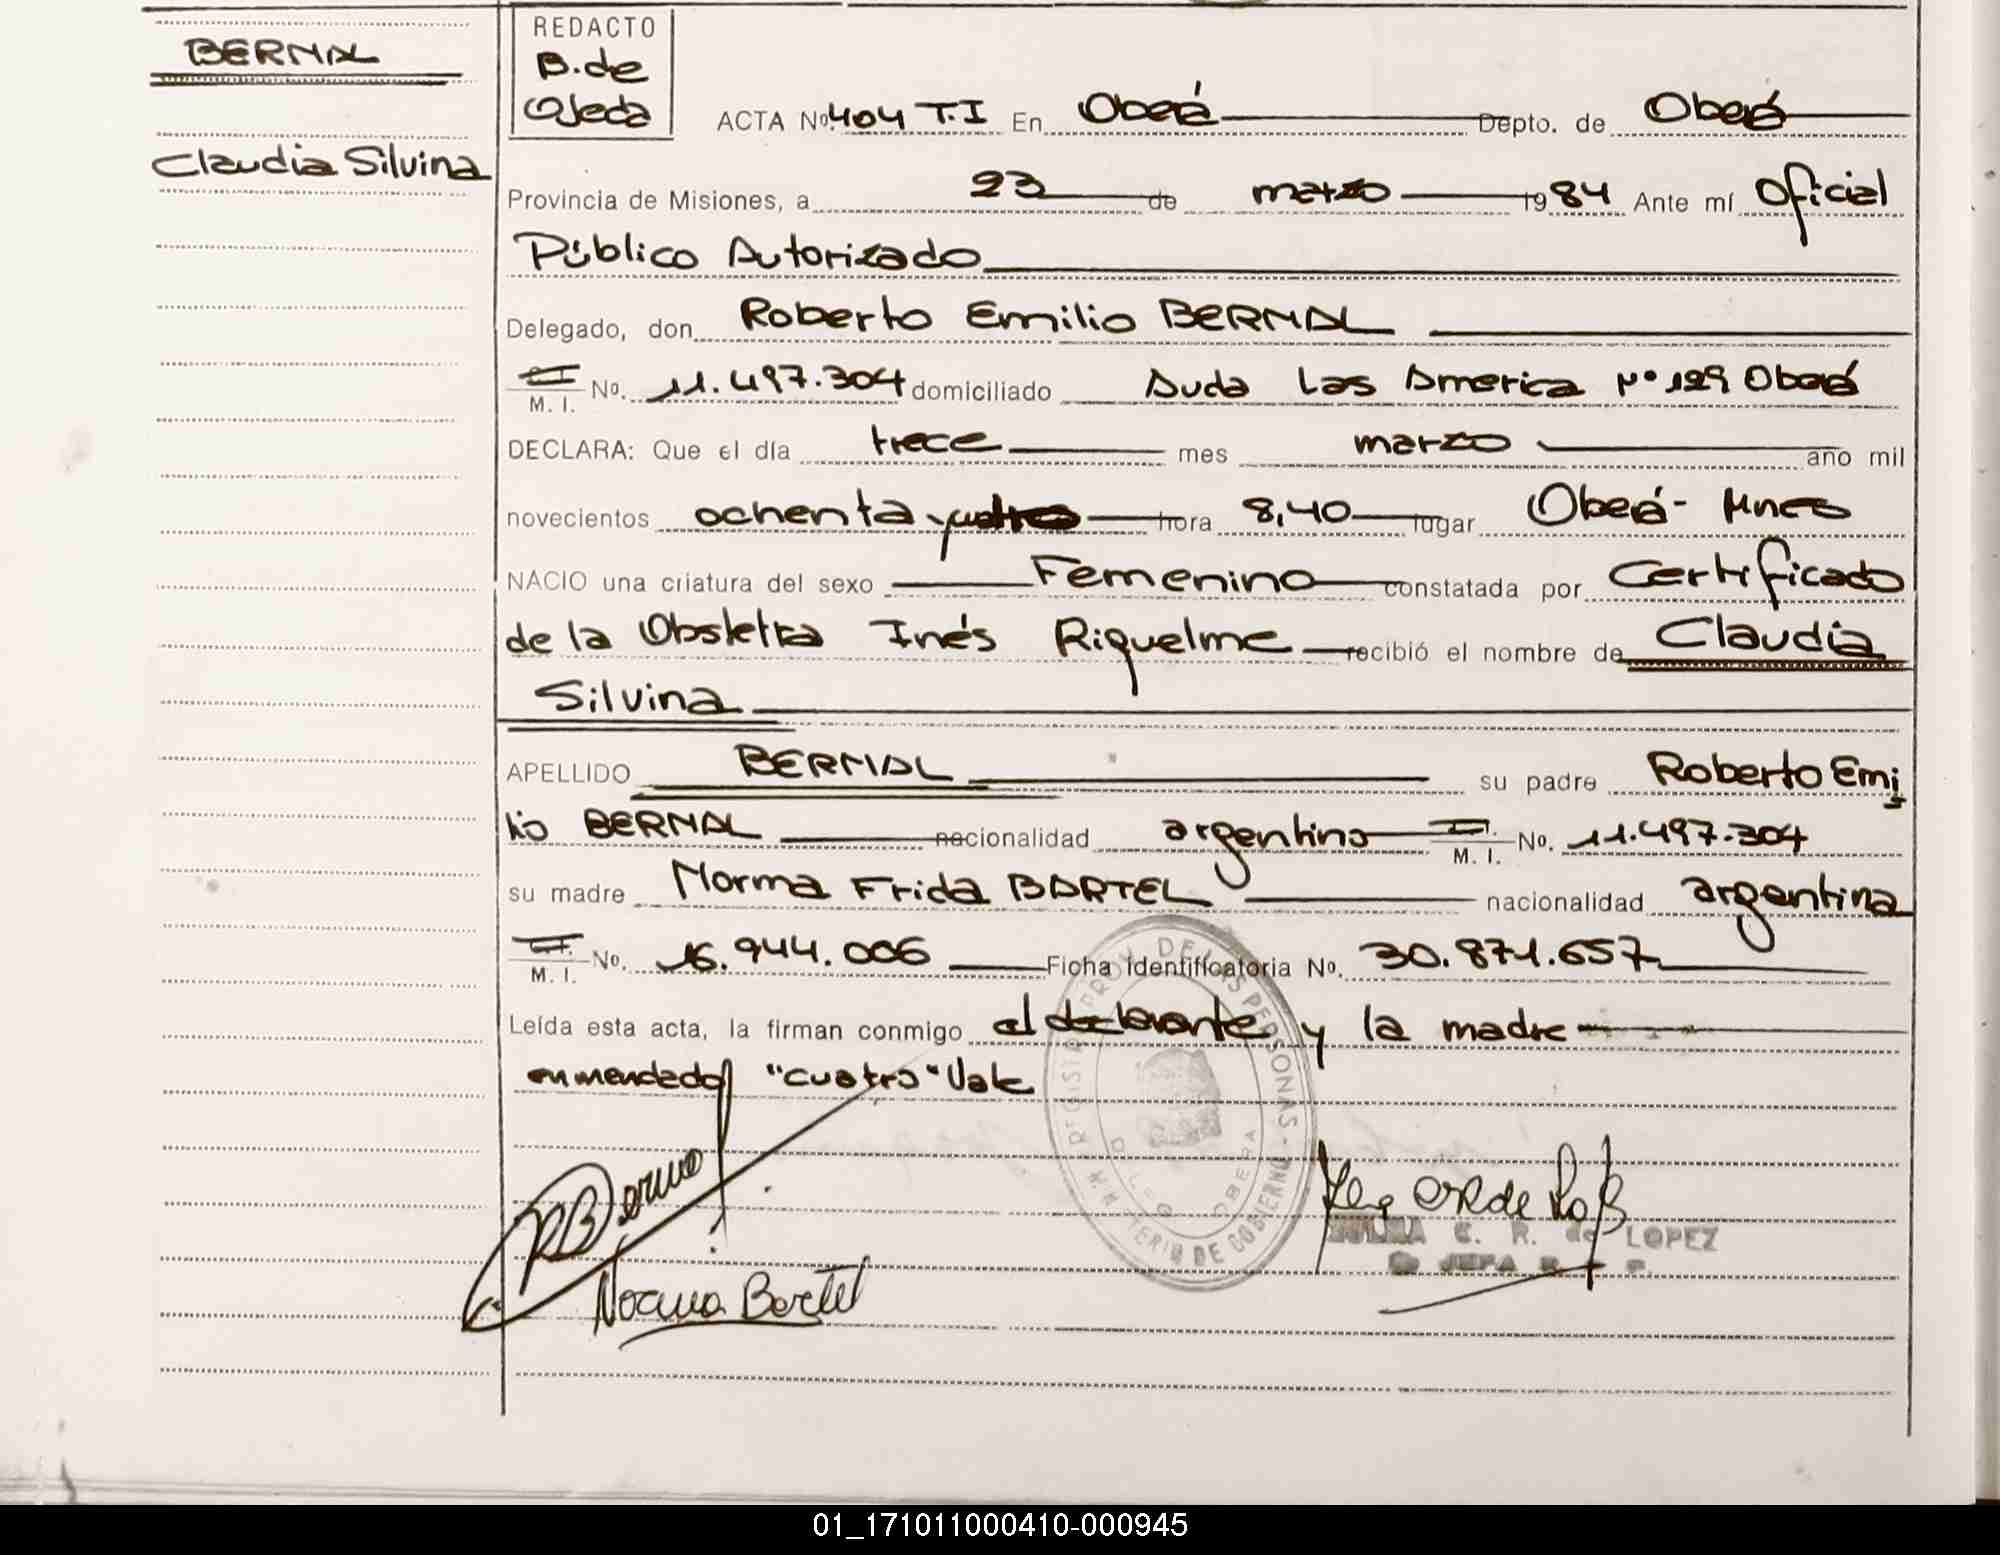 BERNAL
Claudia Silvina
REDACTO
B. de
Ojeda
ACTA Nº 404 T.I En Oberá Depto. de Oberá
Provincia de Misiones, a 23 de marzo 1984 Ante mí Oficial
Público Autorizado
Delegado, don Roberto Emilio BERNAL
M. I. No. 11.497.304 domiciliado Avda Las America Nº 129 Oberá
DECLARA: Que el día trece mes marzo año mil
novecientos ochenta y cuatro hora 8,40 lugar Oberá - Mnes
NACIO una criatura del sexo Femenino constatada por Certificado
de la Obstetra Inés Riquelme recibió el nombre de Claudia
Silvina
APELLIDO BERNAL su padre Roberto Emi
lio BERNAL nacionalidad argentino M. I. No. 11.497.304
su madre Norma Frida BARTEL nacionalidad argentina
M. I. No. 16.944.006 Ficha Identificatoria No. 30.871.657
Leída esta acta, la firman conmigo el declarante y la madre
enmendado "cuatro" Vale
REGISTRO PROV. DE LAS PERSONAS - MINISTERIO DE GOBIERNO
OBERA
RBernal
Norma Bertel
C. R. de LOPEZ
JEFA
01_171011000410-000945